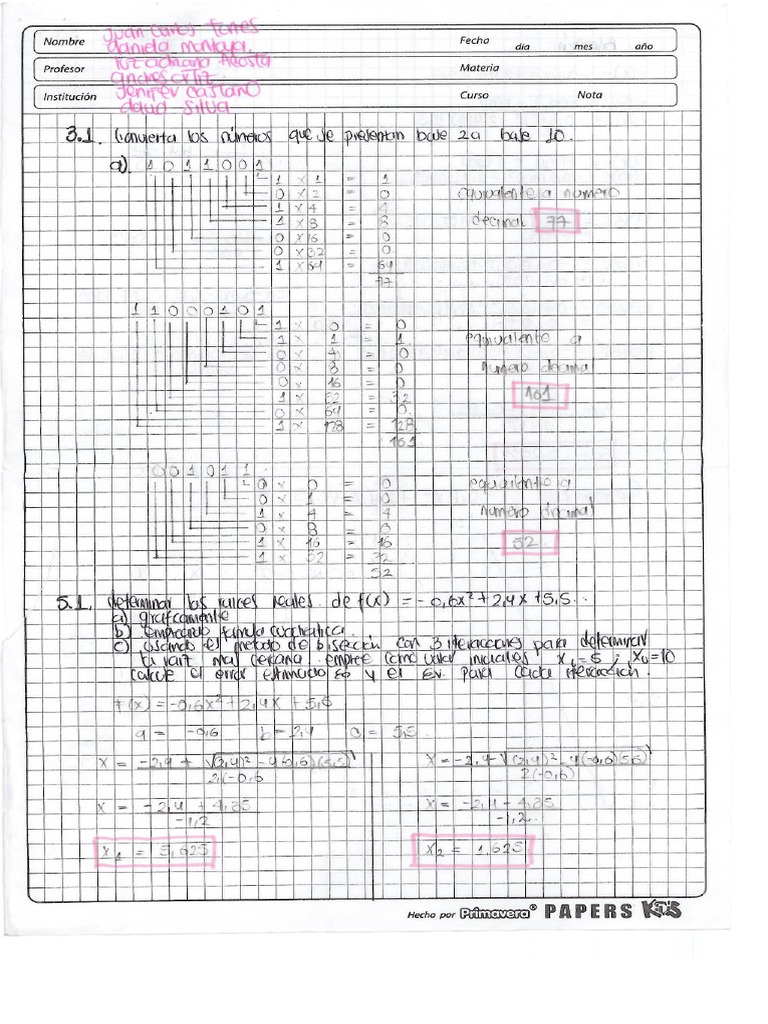 Nombre
Juan Carlos Torres
daniela montoya.
Profesor
Luz adriana Acosta
andres ortiz.
Institución
Jenifer castaño
david Silva
Fecha
dia mes año
Materia
Curso Nota
3.1. Convierta los números que se presentan base 2 a base 10.
a) 1 0 1 1 0 0 1
1 x 1 = 1
0 x 2 = 0
1 x 4 = 4
1 x 8 = 8
0 x 16 = 0
0 x 32 = 0
1 x 64 = 64
77
equivalente a numero
decimal 77
1 1 0 0 0 1 0 1
1 x 0 = 0
1 x 1 = 1
0 x 4 = 0
0 x 8 = 0
0 x 16 = 0
1 x 32 = 32
0 x 64 = 0
1 x 128 = 128
161
equivalente a
numero decimal
161
0 0 1 0 1 1
0 x 0 = 0
0 x 1 = 0
1 x 4 = 4
0 x 8 = 0
1 x 16 = 16
1 x 32 = 32
52
equivalente a
numero decimal
52
5.1. determinar las raices reales de f(x) = -0,6x² + 2,4x + 5,5.
a) graficamente
b) empleando formula cuadratica.
c) usando el metodo de bisección con 3 iteraciones para determinar
la raiz mas cercana. emplee como valor iniciales x = 5 ; xu = 10
calcule el error estimado εa y el εv para cada iteración.
f(x) = -0,6x² + 2,4x + 5,5
a = -0,6 b = 2,4 c = 5,5
x = -2,4 + √(2,4)² - 4(-0,6)(5,5)
2(-0,6
x = -2,4 - √(2,4)² - 4(-0,6)(5,5)
2(-0,6)
x = -2,4 + 4,35
-1,2
x = -2,4 - 4,35
-1,2
x1 = 5,625
x2 = 1,625
Hecho por Primavera® PAPERS KIDS